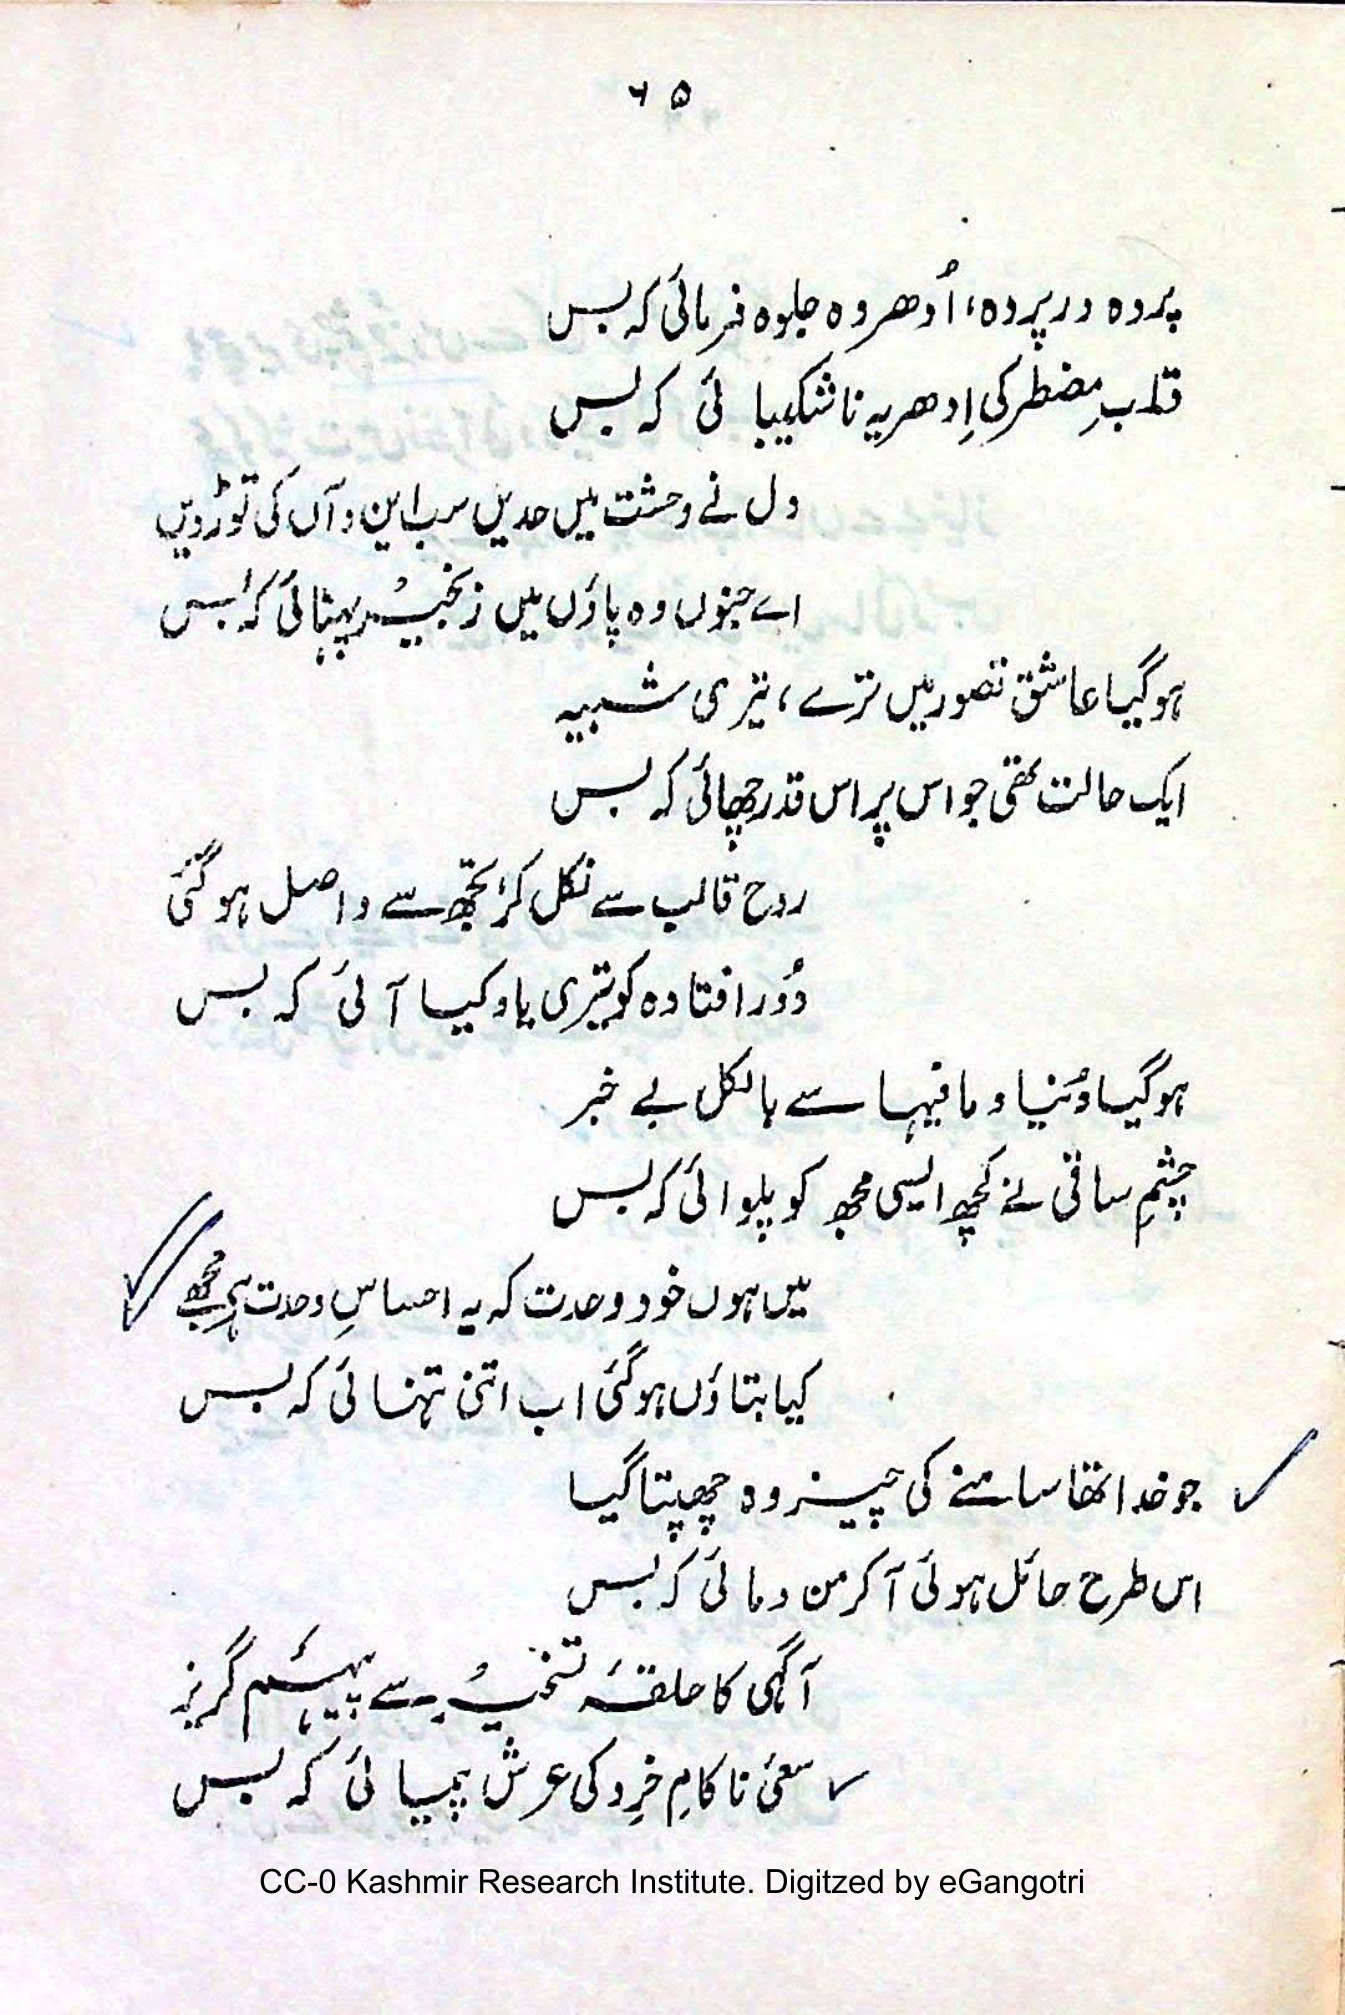 ۶۵
پردہ در پردہ، اُدھر وہ جلوہ فرمائی کہ بس
قلبِ مضطر کی اِدھر یہ ناشکیبائی کہ بس
دل نے وحشت میں حدیں سب این و آں کی توڑ دیں
اے جنوں وہ پاؤں میں زنجیر پہنائی کہ بس
ہوگیا عاشق تصور میں ترے، تیری شبیہ
ایک حالت تھی جو اس پر اس قدر چھائی کہ بس
روح قالب سے نکل کر تجھ سے واصل ہوگئی
دُور افتادہ کو تیری یاد کیا آئی کہ بس
ہوگیا دُنیا و مافیہا سے بالکل بے خبر
چشمِ ساقی نے کچھ ایسی مجھ کو پلوائی کہ بس
میں ہوں خود وحدت کہ یہ احساسِ وحدت ہے مجھے
کیا بتاؤں ہوگئی اب اتنی تنہائی کہ بس
جو خدا تھا سامنے کی چیز وہ چھپتا گیا
اس طرح حائل ہوئی آکر من و مائی کہ بس
آگہی کا حلقۂ تسخیر سے پیہم گریز
سعئ ناکامِ خِرد کی عرش پیمائی کہ بس
CC-0 Kashmir Research Institute. Digitzed by eGangotri